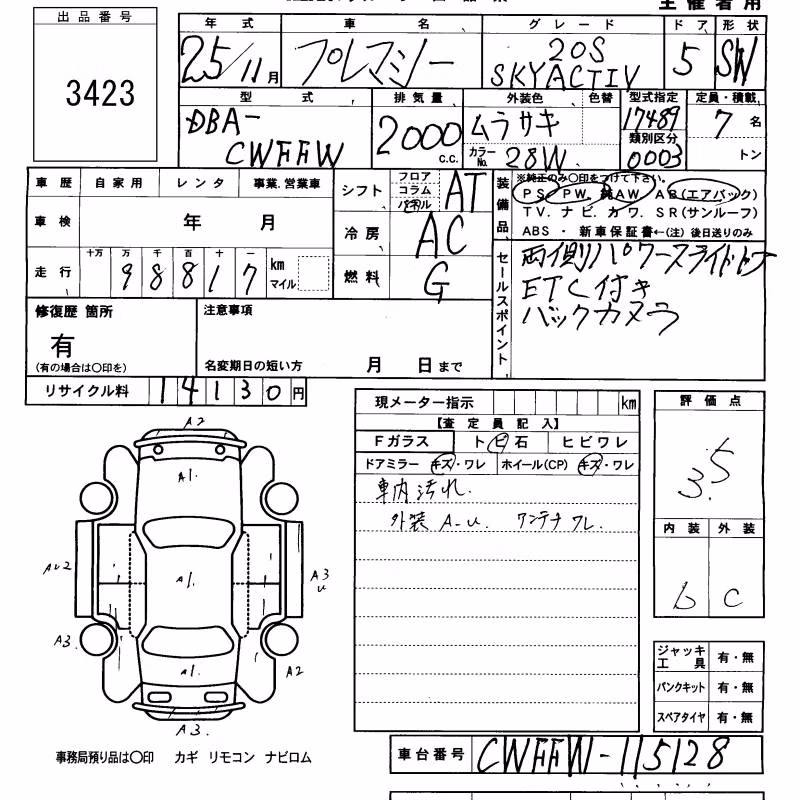 主催者用
出品番号
3423
年式 車名 グレード ドア 形状
25/11月 プレマシー 20S SKYACTIV 5 SW
型式 排気量 外装色 色替 型式指定 定員・積載
DBA-CWFFW 2000 c.c. ムラサキ 17489 7名
類別区分
カラーNo. 28W 0003 トン
車歴 自家用 レンタ 事業.営業車
車検 年 月
走行 十万 万 千 百 十 一
98817 km マイル
シフト フロア コラム パネル AT
冷房 AC
燃料 G
装備品
※純正のみ〇印をつけて下さい。
PS. PW. 純AW. AB(エアバック)
TV. ナビ. カワ. SR(サンルーフ)
ABS ・ 新車保証書←(注) 後日送りのみ
セールスポイント
両側パワースライドドア
ETC付き
バックカメラ
修復歴 箇所
有
(有の場合は〇印を)
注意事項
名変期日の短い方 月 日まで
リサイクル料 14130円
現メーター指示 km
【査定員記入】
Fガラス トビ石 ヒビワレ
ドアミラー キズ・ワレ ホイール(CP) キズ・ワレ
車内汚れ.
外装 A-U. ワンテナ ワレ.
評価点
3.5
内装 外装
b c
A2
A1.
AU2
A1.
A3
U
A3.
A2
A1.
A3.
ジャッキ工具 有・無
パンクキット 有・無
スペアタイヤ 有・無
事務局預り品は〇印 カギ リモコン ナビロム
車台番号 CWFFW-115128